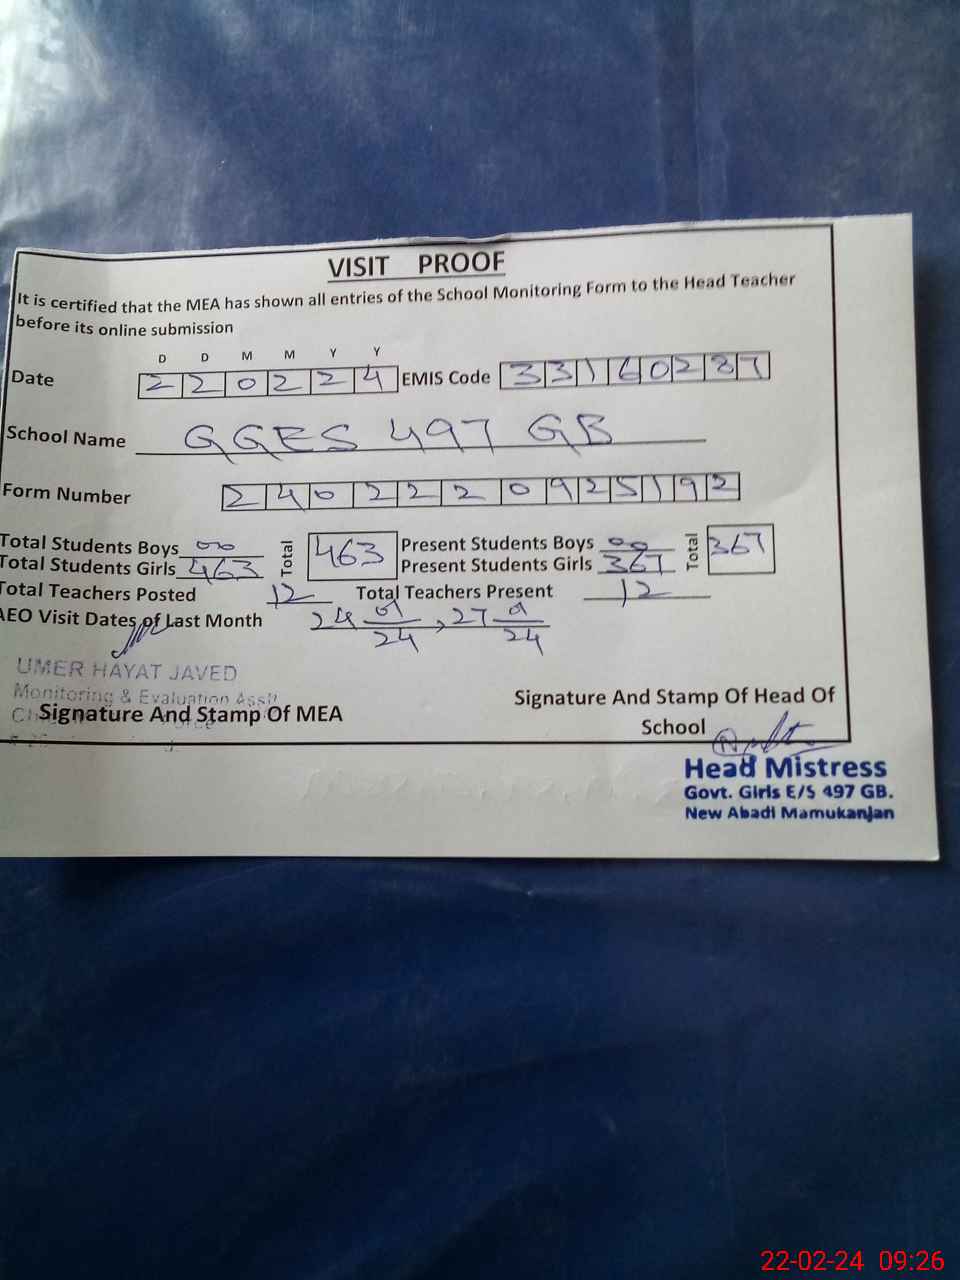 VISIT PROOF
It is certified that the MEA has shown all entries of the School Monitoring Form to the Head Teacher
before its online submission
D D M M Y Y
Date 2 2 0 2 2 4 EMIS Code 3 3 1 6 0 2 8 7
School Name GGES 497 GB
Form Number 2 4 0 2 2 2 0 9 2 5 1 9 2
Total Students Boys 00 Total 463 Present Students Boys 00 Total 367
Total Students Girls 463 Present Students Girls 367
Total Teachers Posted 12 Total Teachers Present 12
AEO Visit Dates of Last Month 24 01/24, 27 01/24
UMER HAYAT JAVED
Monitoring & Evaluation Asstt
Signature And Stamp Of MEA
Signature And Stamp Of Head Of
School
Head Mistress
Govt. Girls E/S 497 GB.
New Abadi Mamukanjan
22-02-24 09:26